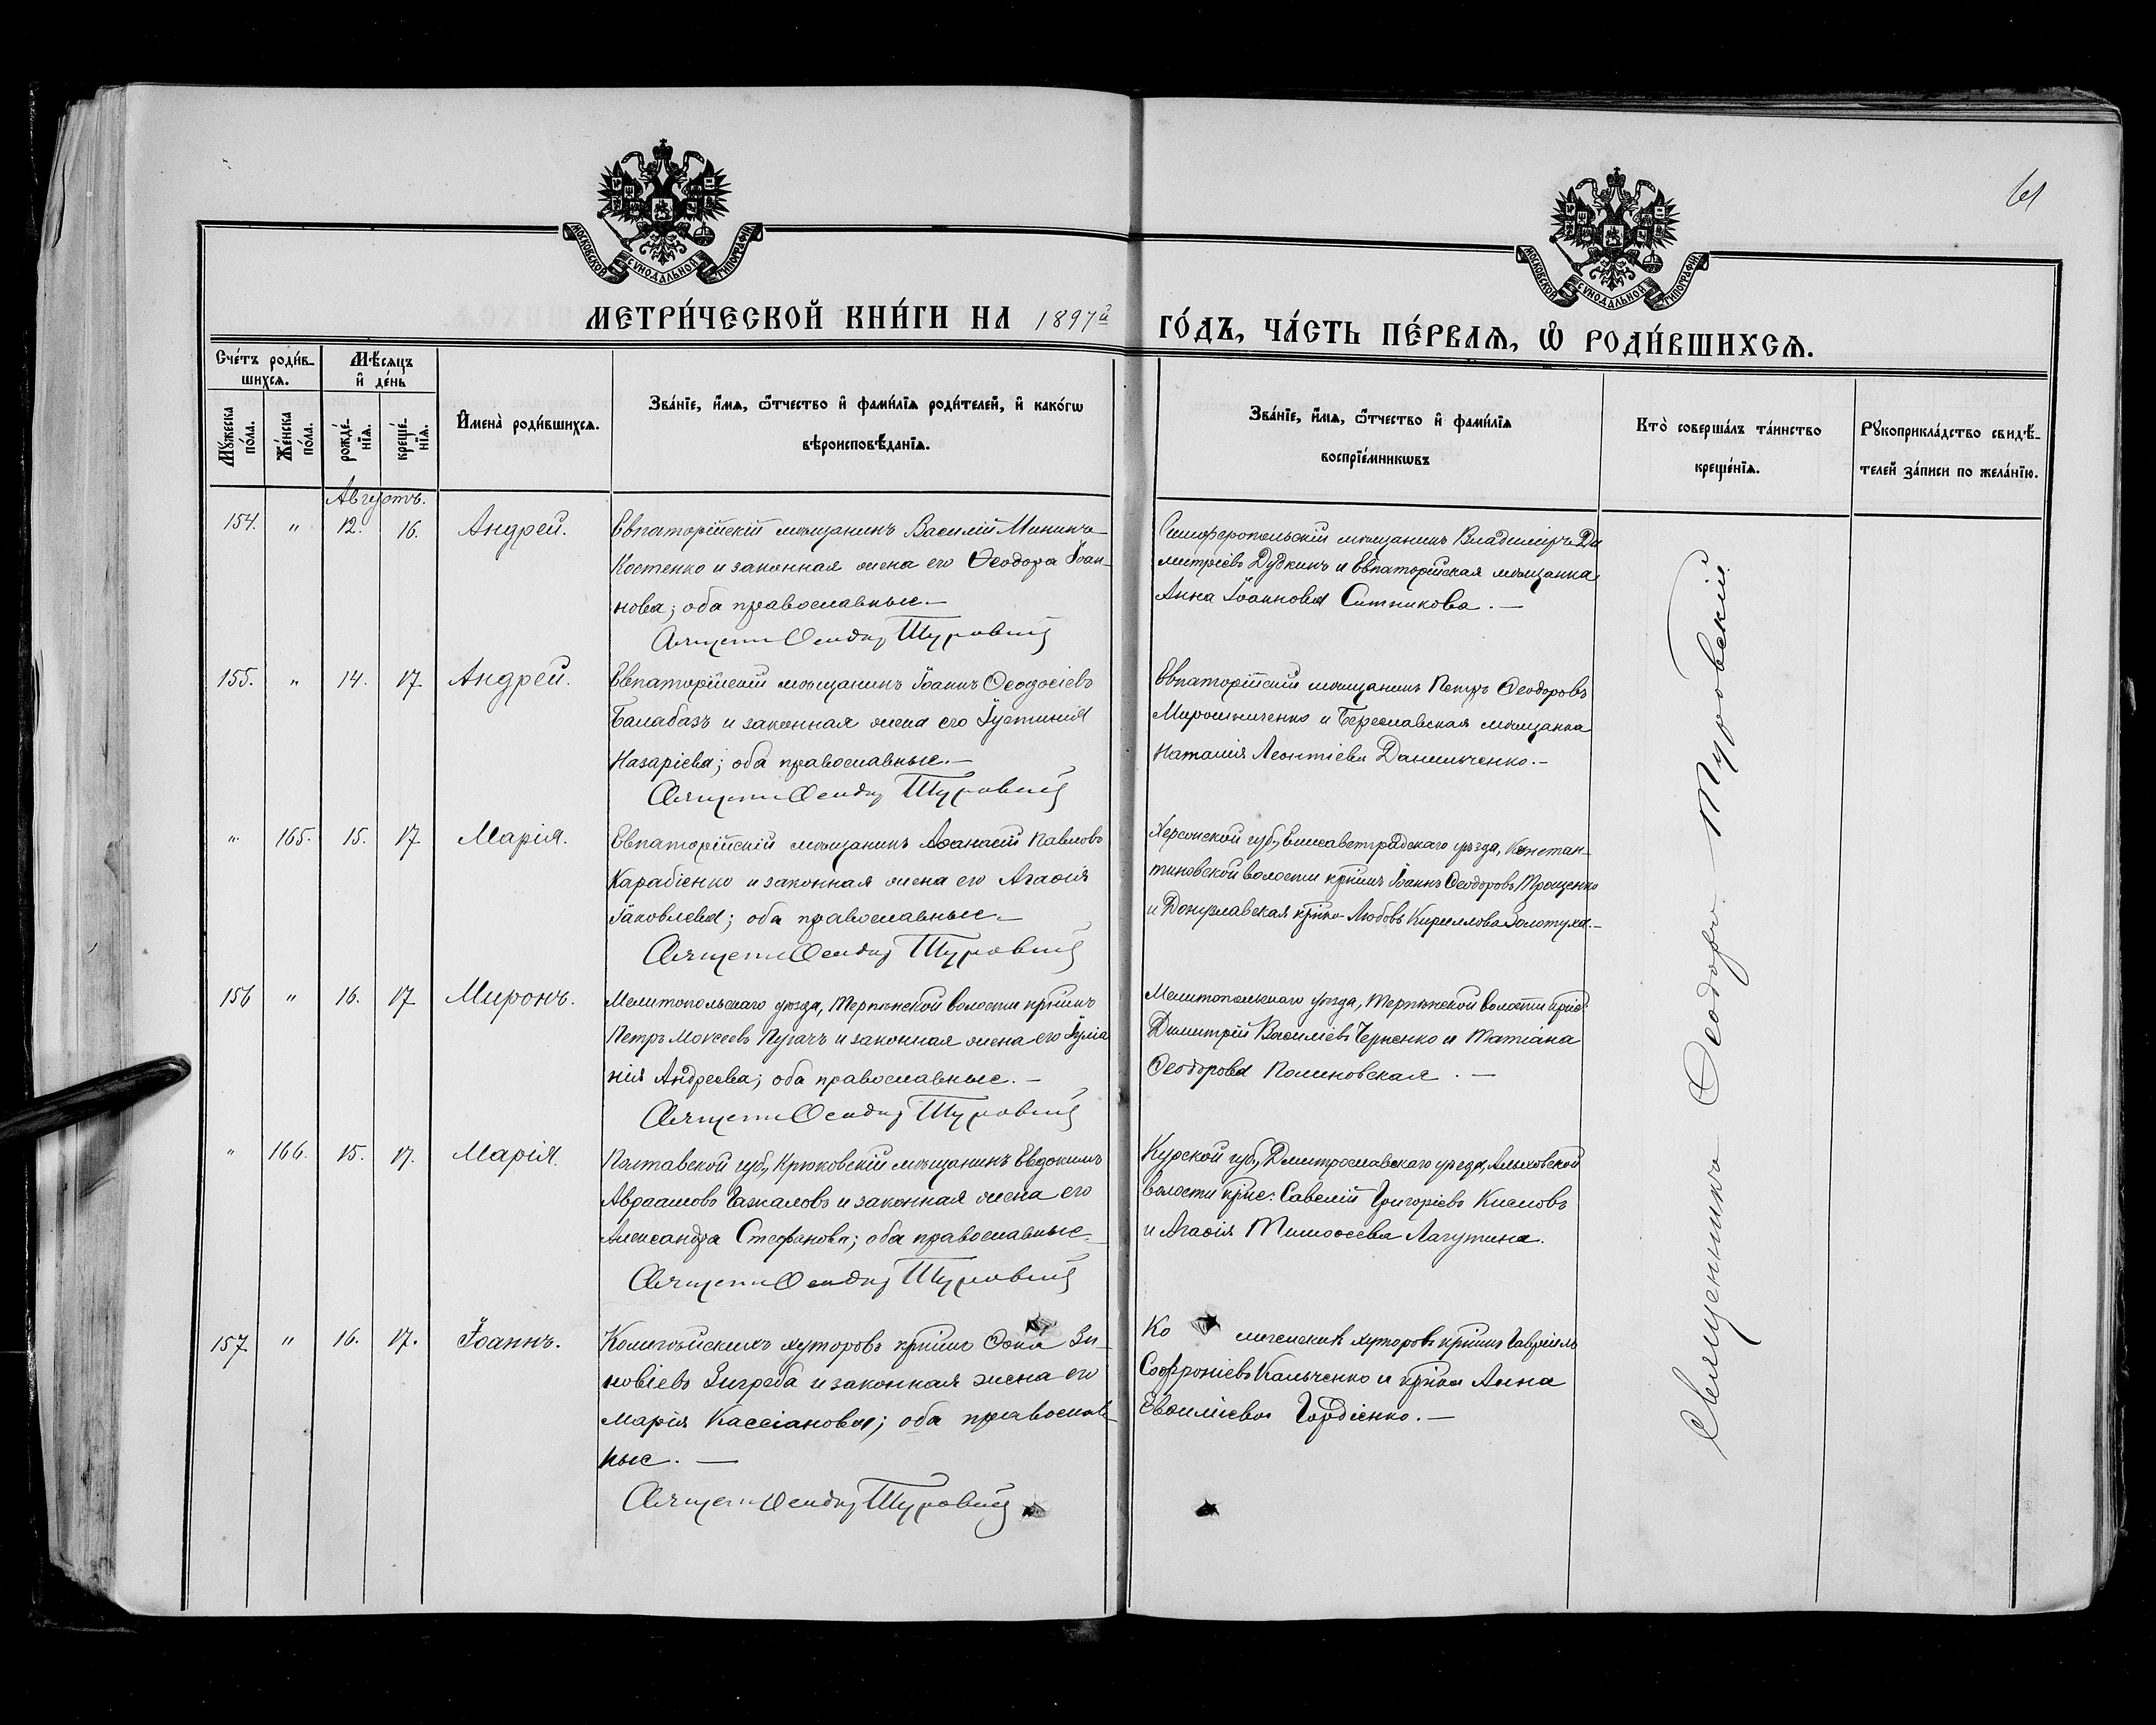 61
МОСКОВСКОЙ СѴНОДАЛЬНОЙ ТИПОГРАФІИ
МОСКОВСКОЙ СѴНОДАЛЬНОЙ ТИПОГРАФІИ
МЕТРИ́ЧЕСКОЙ КНИ́ГИ НА 1897й ГО́ДЪ, ЧА́СТЬ ПЕ́РВАѦ, Ѡ҆ РОДИ́ВШИХСѦ.
Сче́тъ роди́в-
шихсѧ.
Мужеска по́ла.
Же́нска по́ла.
Мѣ́сяцъ
и҆ де́нь
рожде́-
нїѧ.
креще́-
нїѧ.
И҆мена̀ роди́вшихсѧ.
Зва́нїе, и҆́мѧ, ѻ҆́тчество и҆ фамѝлїѧ роди́телей, и҆ како́гѡ
вѣроисповѣ́данїѧ.
Зва́нїе, и҆́мѧ, ѻ҆́тчество и҆ фами́лїѧ
воспрїе́мникѡвъ
Кто̀ соверша́лъ та́инство
креще́нїѧ.
Рꙋкоприкла́дство свидѣ́-
телей за́писи по жела́нїю.
Августъ.
154. " 12. 16. Андрей.
Евпаторійскій мѣщанинъ Василій Мининъ
Костенко и законная жена его Ѳеодора Іоан-
нова; оба православные.—
Священ Ѳеодор Туровскій
Симферопольскій мѣщанинъ Владиміръ Ди
митріевъ Дудкинъ и Евпаторійская мѣщанка
Анна Іоаннова Ситникова.—
155. " 14. 17. Андрей.
Евпаторійскій мѣщанинъ Іоаннъ Ѳеодосіевъ
Балабазъ и законная жена его Іустинія
Назаріева; оба православные.—
Священ Ѳеодор Туровскій
Евпаторійскій мѣщанинъ Петръ Ѳеодоровъ
Мирошниченко и Береславская мѣщанка
Наталія Леонтіева Данильченко.—
" 165. 15. 17. Марія.
Евпаторійскій мѣщанинъ Аѳанасій Павловъ
Карабіенко и законная жена его Агаѳія
Іаковлева; оба православные.—
Священ Ѳеодор Туровскій
Херсонской губ., Елисаветградскаго уѣзда, Констан-
тиновской волости крнинъ Іоаннъ Ѳеодоровъ Трощенко
и Донузлавская крнка Любовь Кириллова Золотуха.—
156 " 16. 17. Миронъ.
Мелитопольскаго уѣзда, Терпѣнской волости крнинъ
Петръ Моисеевъ Пугачъ и законная жена его Іуліа
нія Андреева; оба православные.—
Священ Ѳеодор Туровскій
Мелитопольскаго уѣзда, Терпѣнской волости
Димитрій Василіевъ Черненко и Татіана
Ѳеодорова Полиновская.—
" 166. 15. 17. Марія.
Полтавской губ., Крюковскій мѣщанинъ Евдокимъ
Авраамовъ Гажаловъ и законная жена его
Александра Стефанова; оба православные.
Священ Ѳеодор Туровскій
Курской губ., Дмитрославскаго уѣзда,
волости Савелій Григоріевъ Кисловъ
и Агаѳія Тимоѳеева Лагутина.
157. " 16. 17. Іоаннъ.
хуторовъ крнинъ Ѳома Зи-
новіевъ Зиграба и законная жена его
Марія Кассіанова; оба православ-
ные.—
Священ Ѳеодор Туровскій
хуторовъ крнинъ Гавріилъ
Софроніевъ Кальченко и крнка Анна
Евѳиміева Гордіенко.—
Священникъ Ѳеодоръ Туровскій